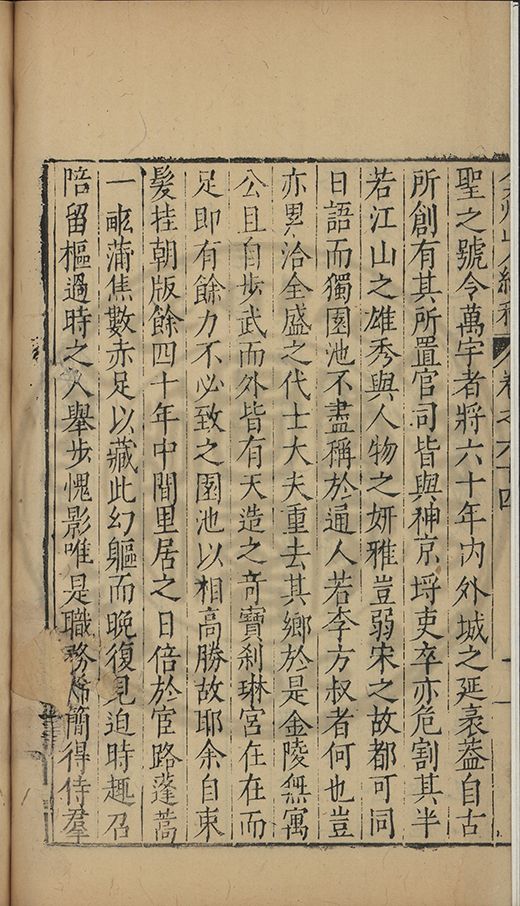 弇州山人續稿 卷之六十四 一
聖之號令萬宇者將六十年內外城之延袤葢自古
所創有其所置官司皆與神京埒吏卒亦危割其半
若江山之雄秀與人物之妍雅豈弱宋之故都可同
日語而獨園池不盡稱於通人若李方叔者何也豈
亦累洽全盛之代士大夫重去其鄉於是金陵無寓
公且自步武而外皆有天造之奇寶剎琳宮在在而
足即有餘力不必致之園池以相高勝故耶余自束
髮挂朝版餘四十年中間里居之日倍於宦路蓬蒿
一畝蒲焦數赤足以藏此幻軀而晚復見迫時趣召
陪留樞過時之人舉步愧影唯是職務稀簡得侍羣